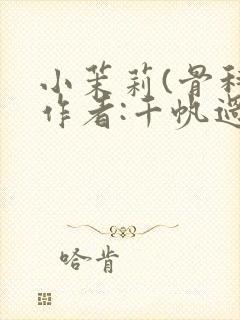 小茉莉(骨科
作者:千帆過
哈肯